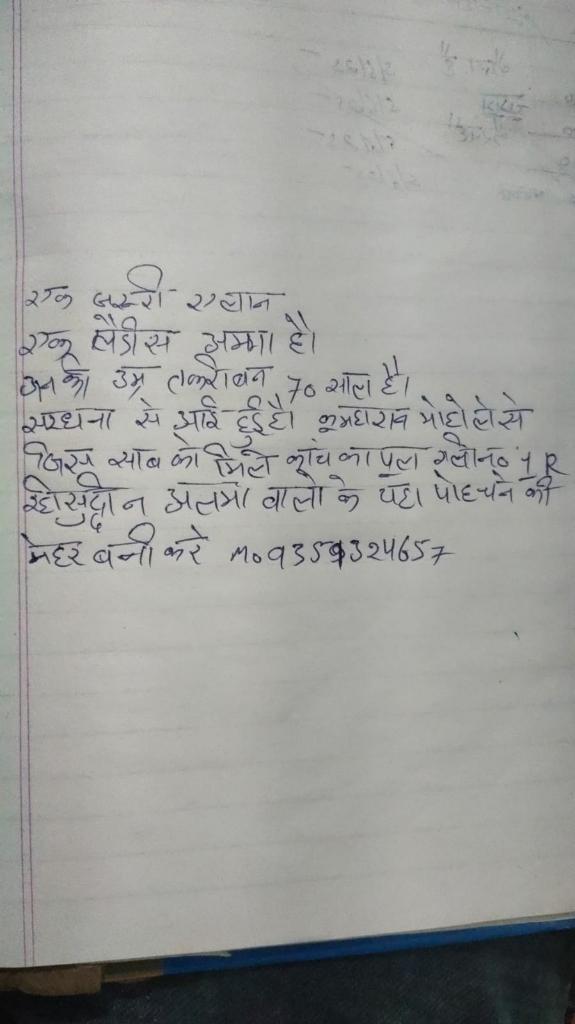 एक जरूरी एलान
एक लैडीस अममा है।
उनकी उम्र तकरीबन 70 साल है।
सरधना से आई हुई है। कुमहारान मोहोले से
जिस साब को मिले कांच का पुल गली न० 1
के पहा पोहचने की
मेहर बनी करे मो० 9359324657